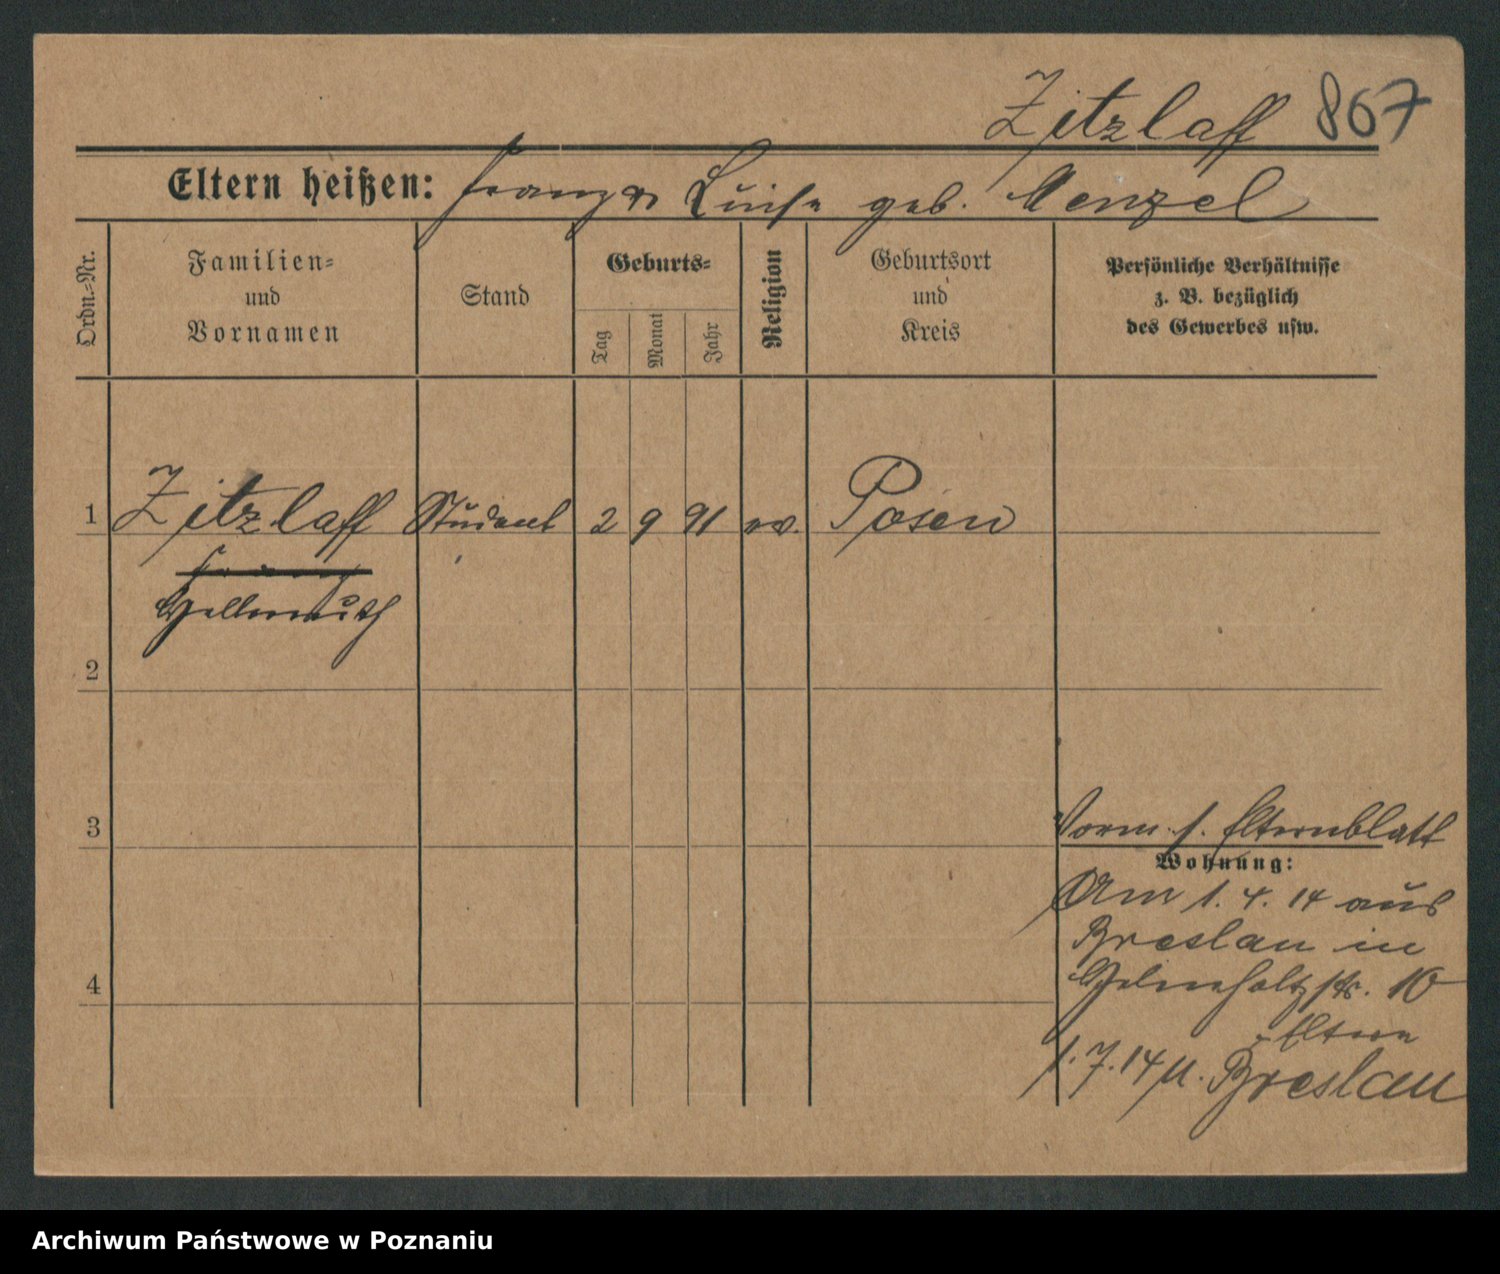 Zitzlaff 867
Eltern heißen: Franz u Luise geb. Menzel
Ordn.-Nr.
Familien-
und
Vornamen
Stand
Geburts-
Tag
Monat
Jahr
Religion
Geburtsort
und
Kreis
Persönliche Verhältnisse
z. B. bezüglich
des Gewerbes usw.
1 Zitzlaff Student 2 9 91 ev. Posen
Franz
Hellmuth
2
3
Vorm. s. Elternblatt
Wohnung:
Am 1. 4. 14 aus
Breslau in
str. 10
4
Eltern
1. 7. 14 n. Breslau
Archiwum Państwowe w Poznaniu